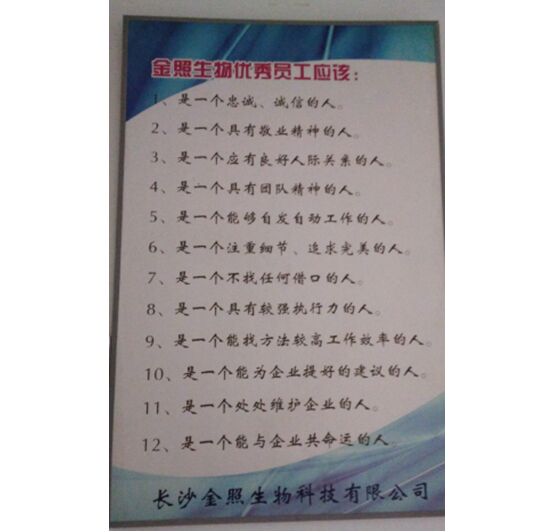 金照生物优秀员工应该：
1、是一个忠诚、诚信的人。
2、是一个具有敬业精神的人。
3、是一个应有良好人际关系的人。
4、是一个具有团队精神的人。
5、是一个能够自发自动工作的人。
6、是一个注重细节、追求完美的人。
7、是一个不找任何借口的人。
8、是一个具有较强执行力的人。
9、是一个能找方法较高工作效率的人。
10、是一个能为企业提好的建议的人。
11、是一个处处维护企业的人。
12、是一个能与企业共命运的人。
长沙金照生物科技有限公司